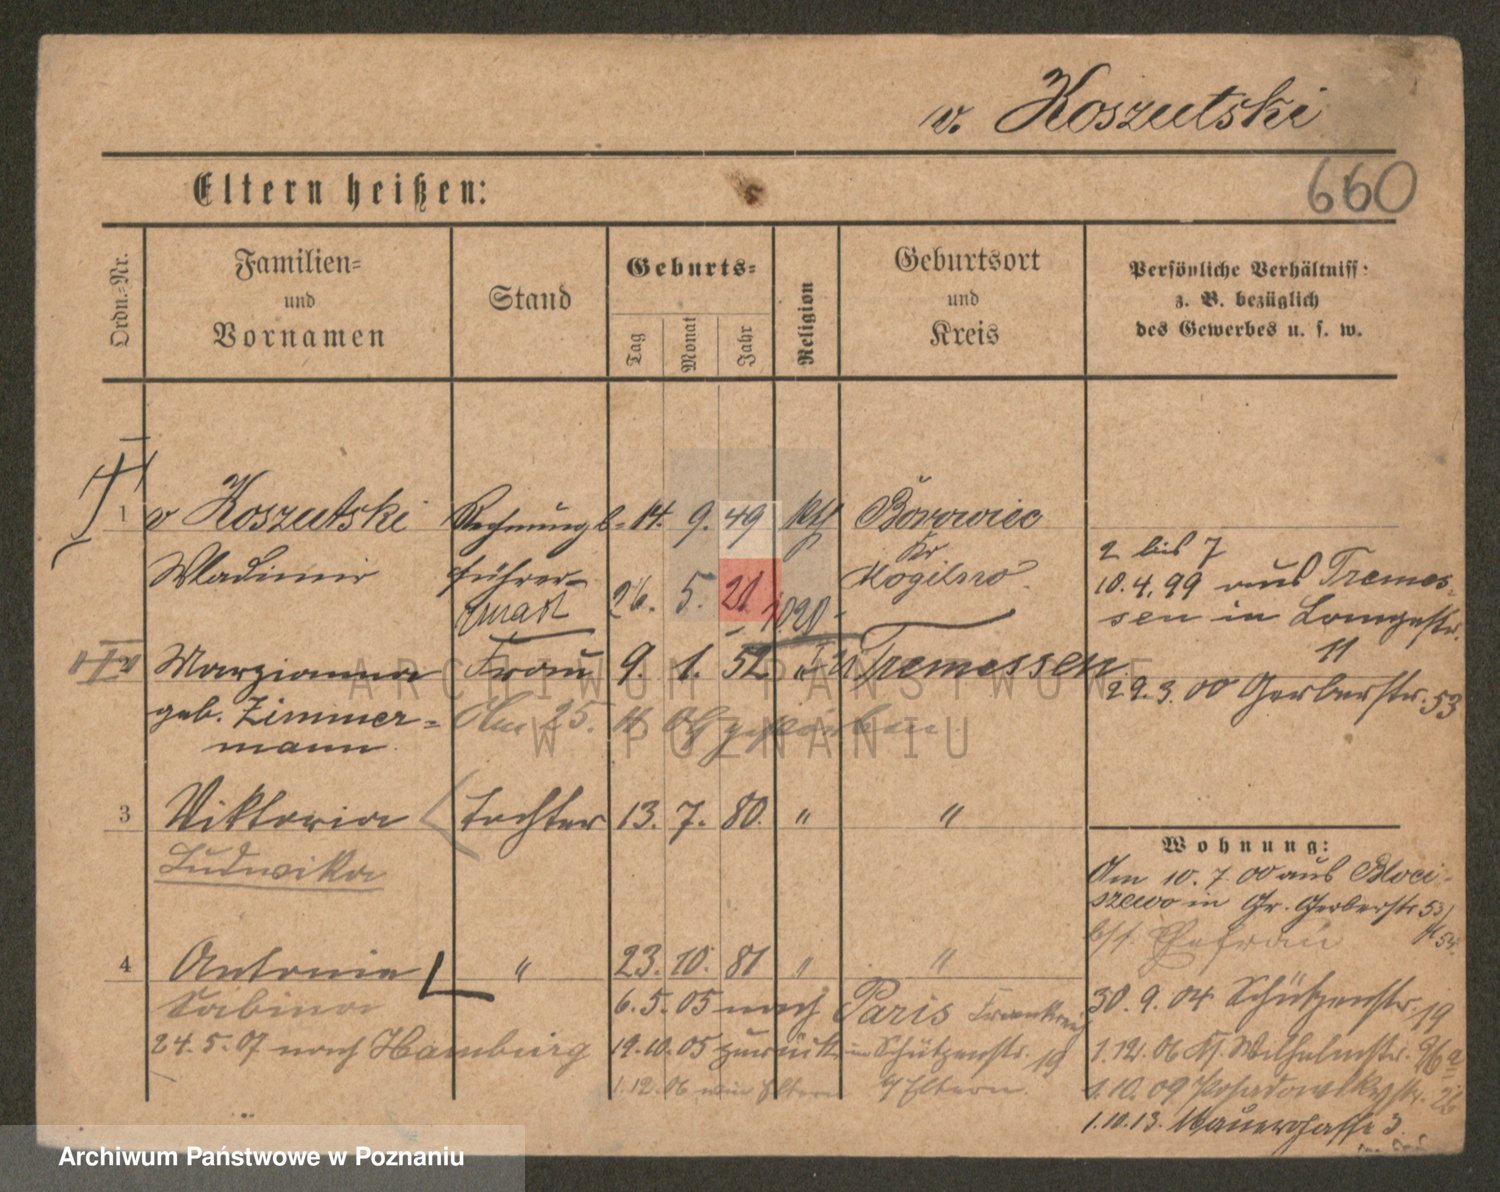 v. Koszutski
Eltern heißen:
660
Ordn.-Nr.
Familien-
und
Vornamen
Stand
Geburts-
Tag
Monat
Jahr
Religion
Geburtsort
und
Kreis
Persönliche Verhältniss:
z. B. bezüglich
des Gewerbes u. s. w.
1 v Koszutski Rechnungs- 14. 9. 49 kth Borowiec
Wladimir führer Kr
Mogilno
26. 5. 21 1020
2 bis 7
10.4.99 aus Tremes-
sen in Langestr.
11
2 Marzianna Frau 9. 1. 52 Tremessen
29.3.00 Gerberstr. 53
geb. Zimmer- Am 25. gestorben.
mann
3 Viktoria Tochter 13. 7. 80. " "
Ludwika
Wohnung:
Am 10.7.00 aus Bloci-
szewo in Gr. Gerberstr 53/
54.
Ehefrau
4 Antonie " 23. 10. 81 " "
Sabina 6.5.05 nach Paris Frankreich
30.9.04 Schützenstr. 19
24.5.07 nach Hamburg 19.10.05 zurück in Schützenstr. 19
1.12.06 Kl. Wilhelmstr.
1.12.06 Eltern Eltern.
1.10.09 Posadowskystr. 26
1.10.13. Mauergasse 3.
ARCHIWUM PAŃSTWOWE
W POZNANIU
Archiwum Państwowe w Poznaniu